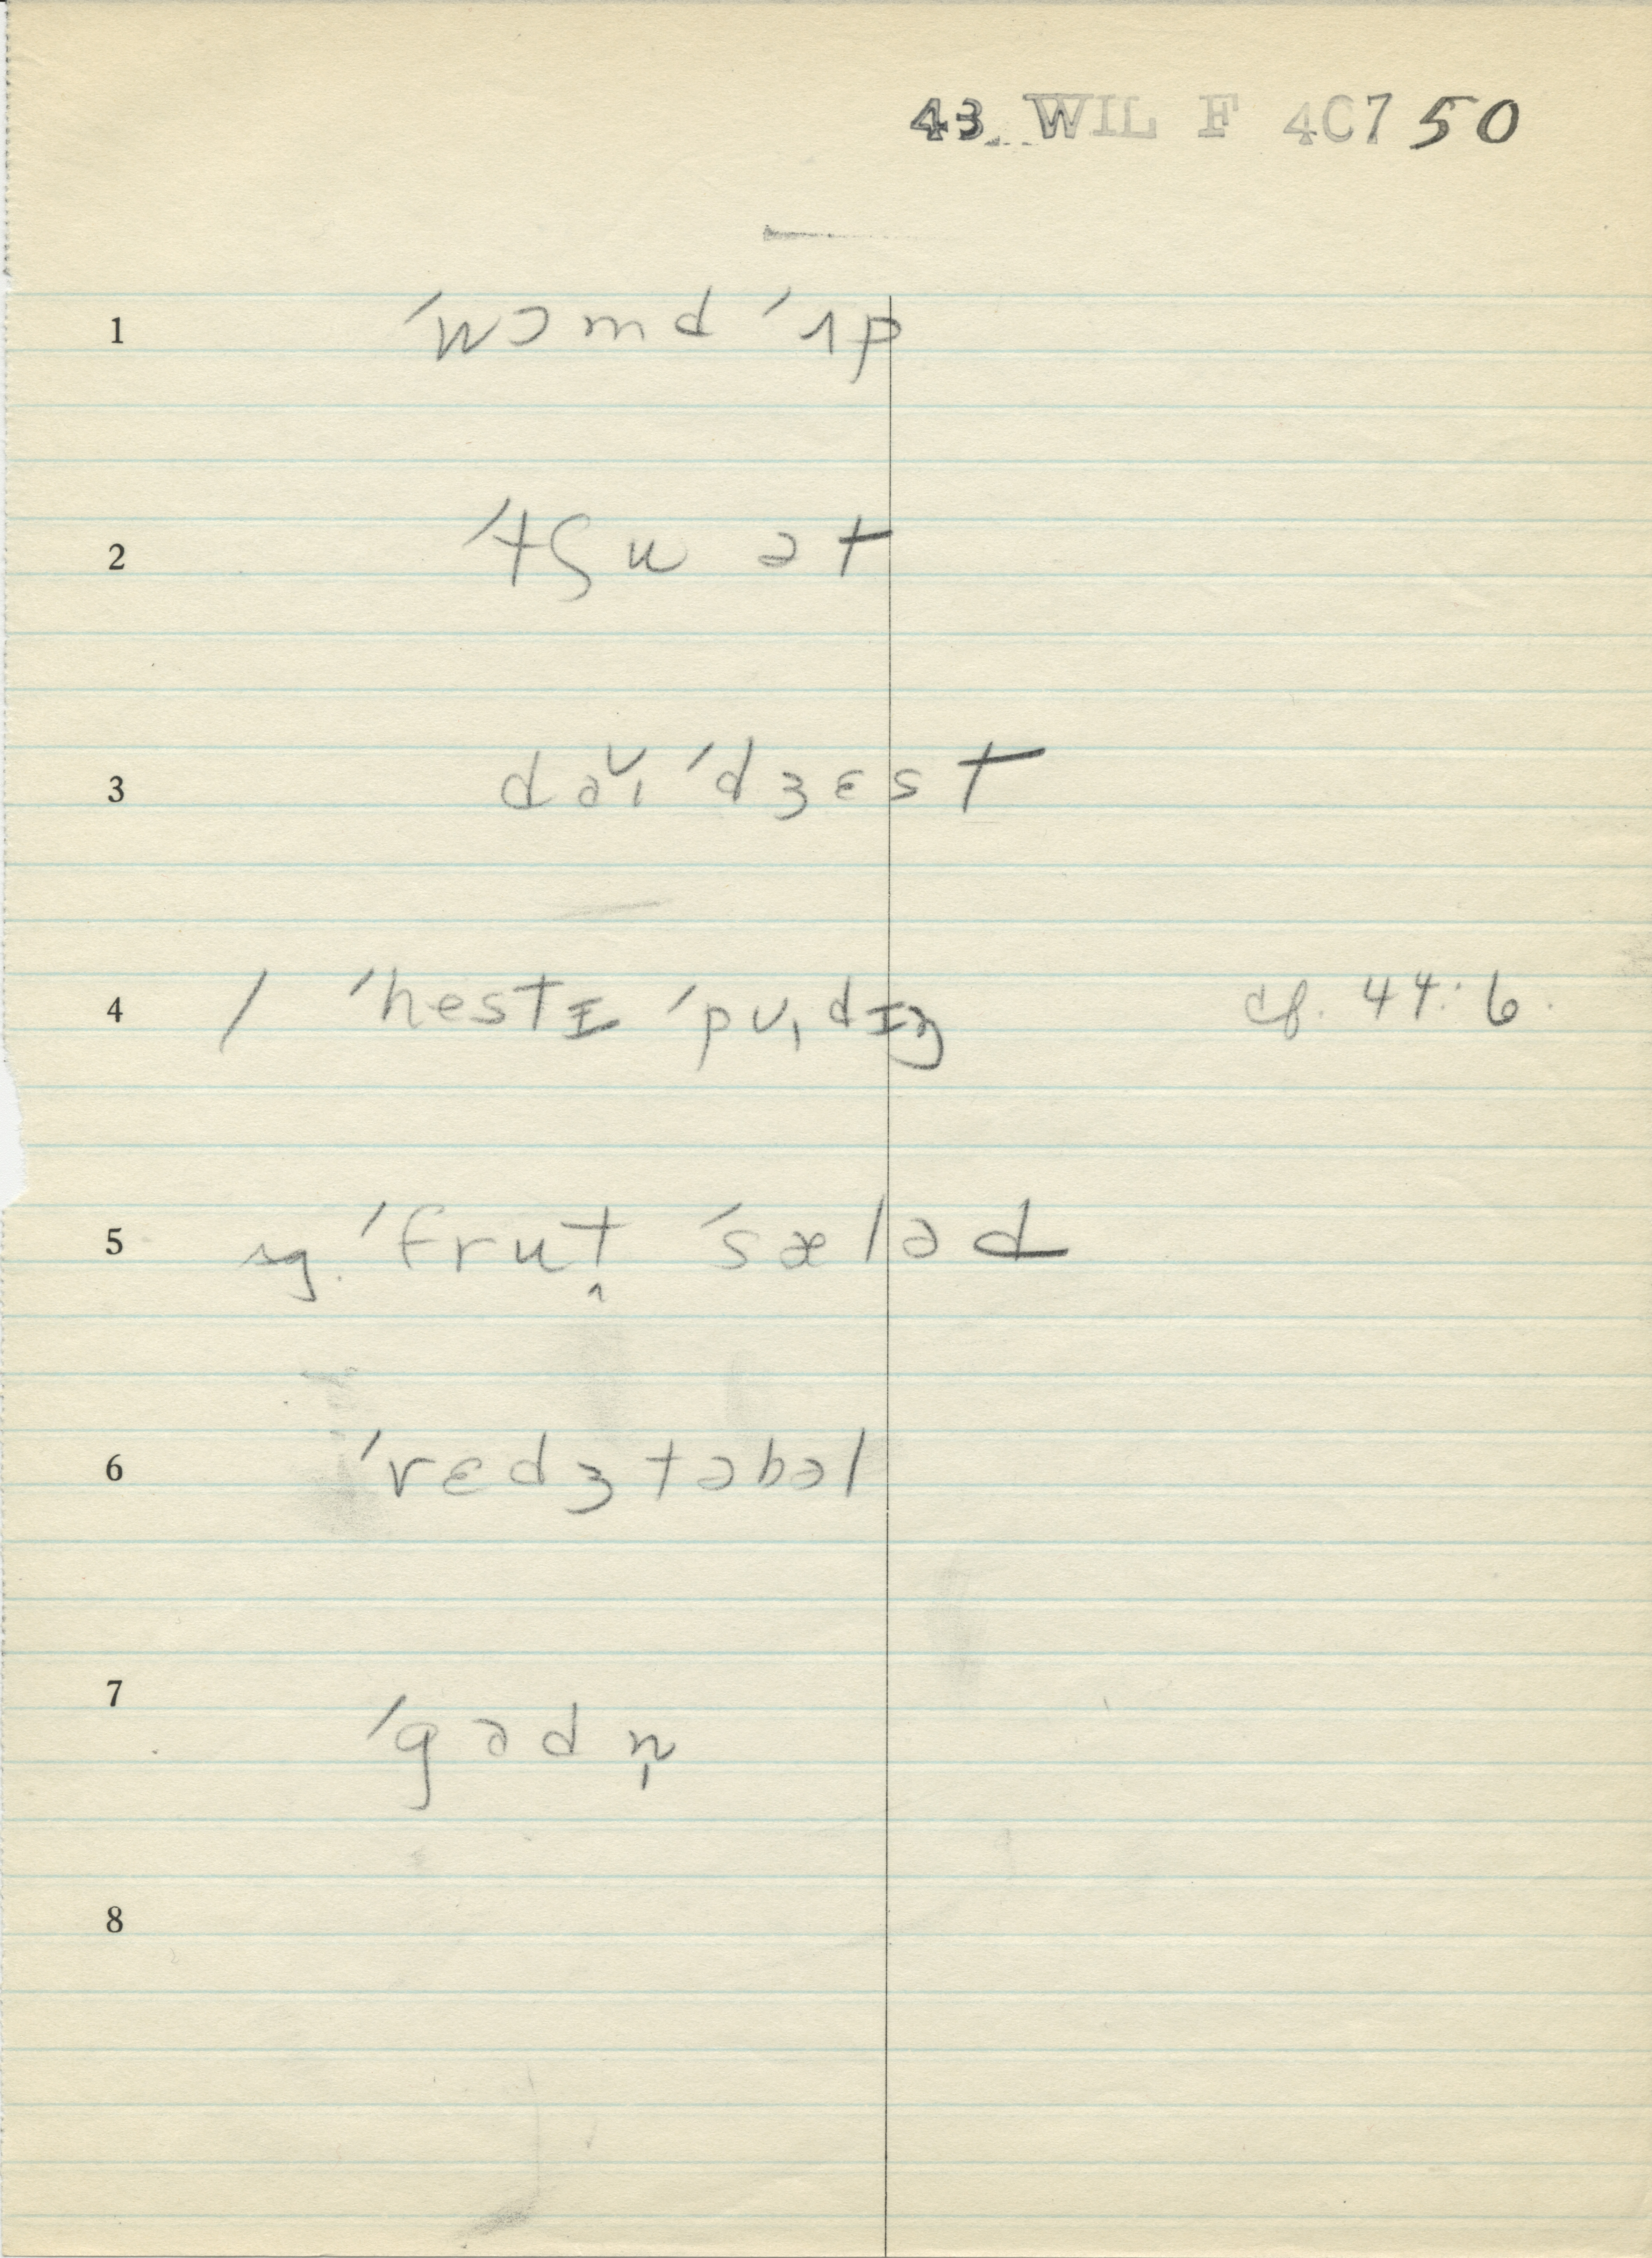 43. WIL F 407 50
1 ˈwɔmd ˈʌp
2 ˈtʃu ət
3 dəˈɪ ˈdʒɛst
4 / ˈhestɪ ˈpʊdɪŋ cf. 44:6.
5 sg. ˈfrut ˈsæləd
6 ˈvɛdʒtəbəl
7 ˈgədn̩
8